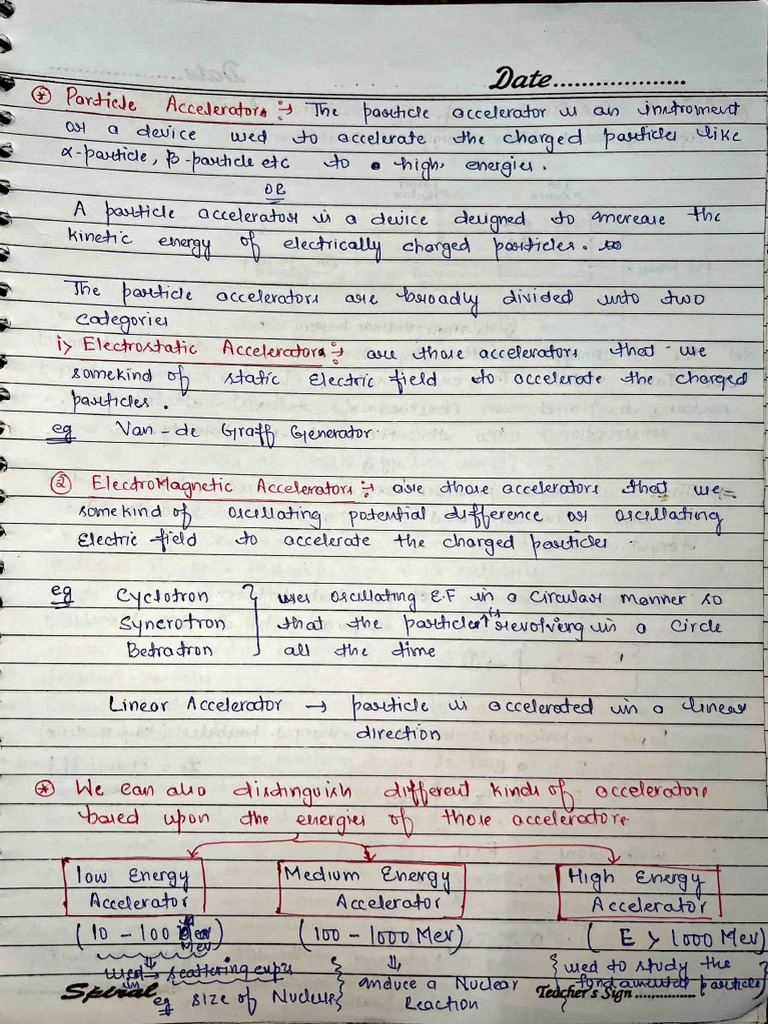 Date..................
* Particle Accelerators :→ The particle accelerator is an instroment
or a device used to accelerate the charged particles like
α-particle, β-particle etc to high energies.
OR
A particle accelerator is a device designed to increase the
kinetic energy of electrically charged particles.
The particle accelerators are broadly divided into two
Categories
i> Electrostatic Accelerators :→ are those accelerators that use
somekind of static Electric field to accelerate the charged
particles.
eg Van-de Graff Generator.
② ElectroMagnetic Accelerators :→ are those accelerators that use
somekind of oscillating potential difference or oscillating
Electric field to accelerate the charged particles.
eg Cyclotron } uses oscillating E.F in a circular manner so
Syncrotron } that the particles is revolving in a circle
Betratron } all the time
Linear Accelerator → particle is accelerated in a linear
direction
* We can also distinguish different kinds of accelerators
based upon the energies of those accelerators.
low Energy Medium Energy High Energy
Accelerator Accelerator Accelerator
(10 - 100 Mev) (100 - 1000 Mev) (E > 1000 Mev)
used → scattering expts } induce a Nuclear { used to study the
in
eg size of Nucleus } Reaction fundamental particles
Spiral Teacher's Sign ................